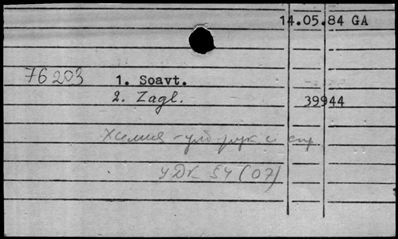 14.05.84 GA
76203 1. Soavt.
2. Zagl. 39944
Химия - уч. рук. и сп.
УДК 54 (07)